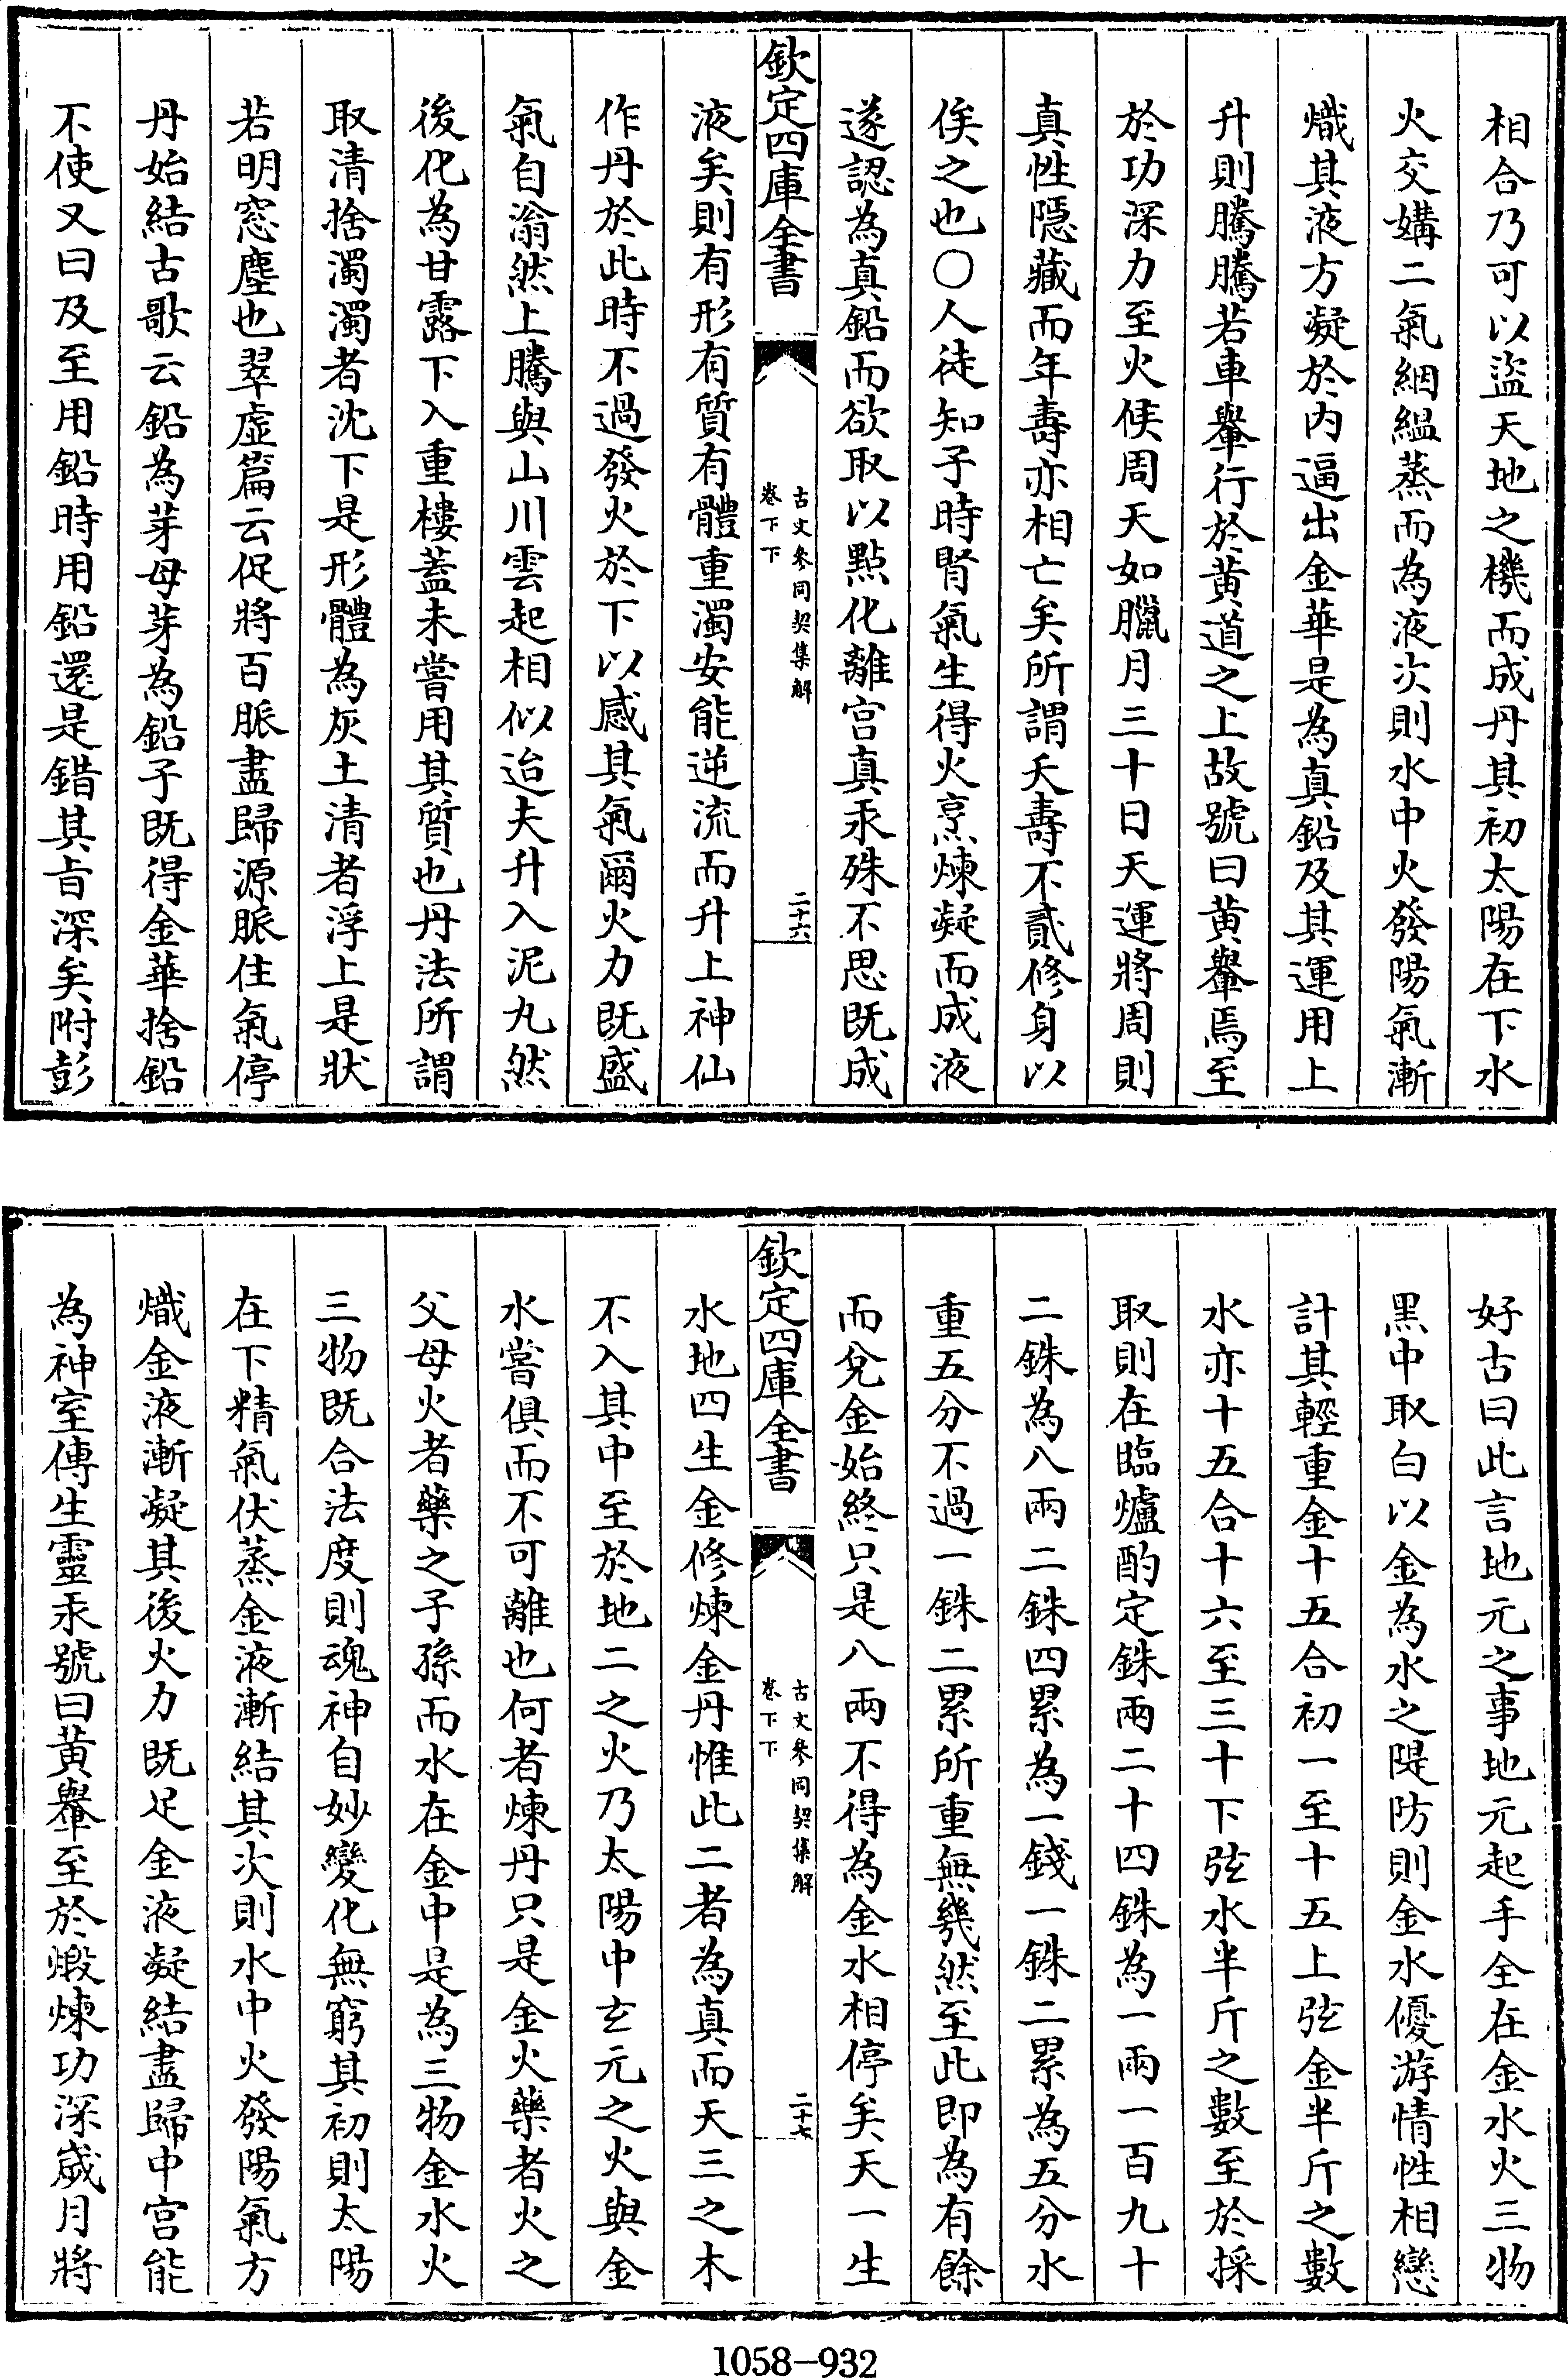 相合乃可以盜天地之機而成丹其初太陽在下水
火交媾二氣絪縕蒸而為液次則水中火發陽氣漸
熾其液方凝於內逼出金華是為真鉛及其運用上
升則騰騰若車轝行於黃道之上故號曰黃轝焉至
於功深力至火候周天如臘月三十日天運將周則
真性隱藏而年壽亦相亡矣所謂夭壽不貳修身以
俟之也〇人徒知子時腎氣生得火烹煉凝而成液
遂認為真鉛而欲取以點化離宮真汞殊不思既成
欽定四庫全書
古文參同契集解
卷下下
二十六
液矣則有形有質有體重濁安能逆流而升上神仙
作丹於此時不過發火於下以感其氣爾火力既盛
氣自滃然上騰與山川雲起相似迨夫升入泥丸然
後化為甘露下入重樓葢未嘗用其質也丹法所謂
取清捨濁濁者沈下是形體為灰土清者浮上是狀
若明窓塵也翠虛篇云促將百脈盡歸源脈住氣停
丹始結古歌云鉛為芽母芽為鉛子既得金華捨鉛
不使又曰及至用鉛時用鉛還是錯其旨深矣附彭
好古曰此言地元之事地元起手全在金水火三物
黑中取白以金為水之隄防則金水優游情性相戀
計其輕重金十五合初一至十五上弦金半斤之數
水亦十五合十六至三十下弦水半斤之數至於採
取則在臨爐酌定銖兩二十四銖為一兩一百九十
二銖為八兩二銖四累為一錢一銖二累為五分水
重五分不過一銖二累所重無幾然至此即為有餘
而兌金始終只是八兩不得為金水相停矣天一生
欽定四庫全書
古文參同契集解
卷下下
二十七
水地四生金修煉金丹惟此二者為真而天三之木
不入其中至於地二之火乃太陽中玄元之火與金
水嘗俱而不可離也何者煉丹只是金火藥者火之
父母火者藥之子孫而水在金中是為三物金水火
三物既合法度則魂神自妙變化無窮其初則太陽
在下精氣伏蒸金液漸結其次則水中火發陽氣方
熾金液漸凝其後火力既足金液凝結盡歸中宮能
為神室傳生靈汞號曰黃轝至於煅煉功深歲月將
1058-932